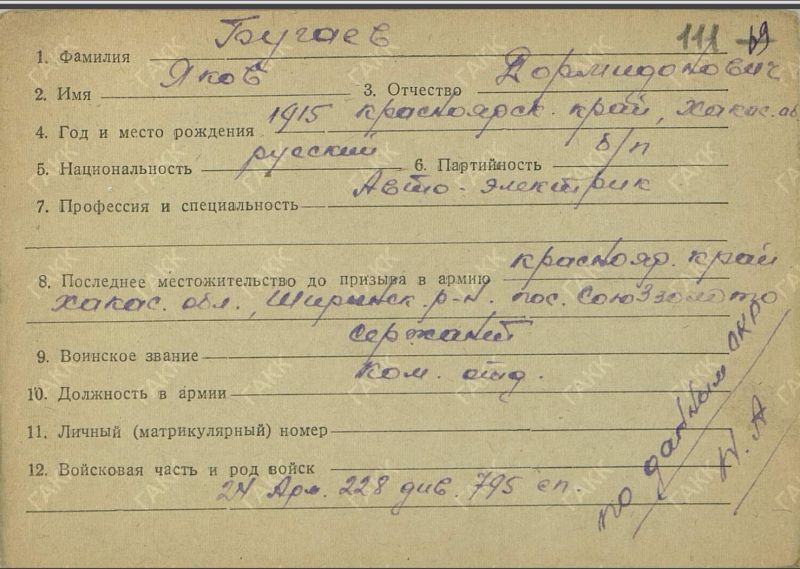 111 19
1. Фамилия Бугаев
2. Имя Яков 3. Отчество Дормидонович
4. Год и место рождения 1915 Красноярск. край, Хакас. ав
5. Национальность русский 6. Партийность б/п
7. Профессия и специальность Авто-электрик
8. Последнее местожительство до призыва в армию Краснояр. край
Хакас. обл., Ширинск. р-н. пос. Союззолото
9. Воинское звание сержант
10. Должность в армии ком. отд.
11. Личный (матрикулярный) номер
12. Войсковая часть и род войск
24 Арм. 228 див. 795 сп.
по данным
ГАКК